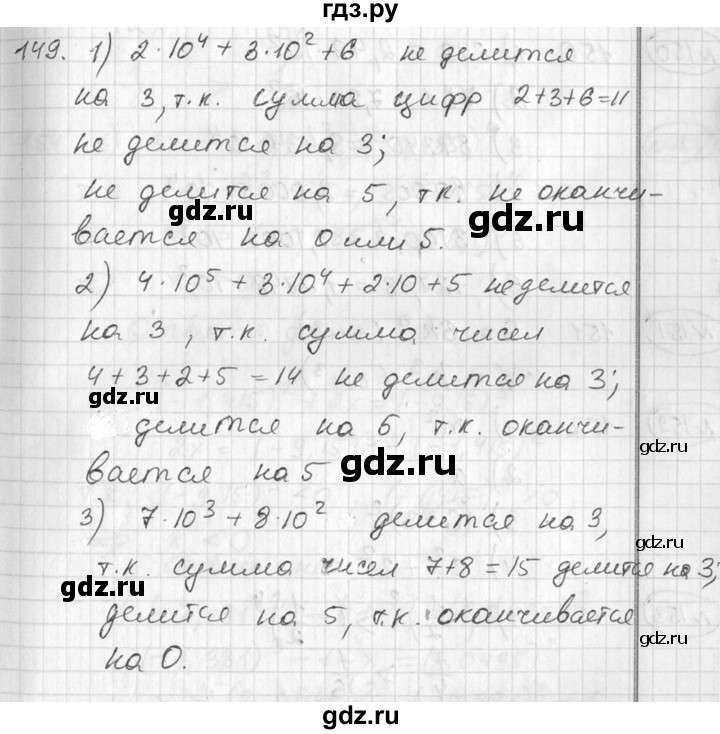 гдз.ру
149. 1) 2·10⁴ + 3·10² + 6 не делится
на 3, т.к. сумма цифр 2+3+6=11
не делится на 3;
не делится на 5, т.к. не оканчи-
gdz.ru
gdz.ru
вается на 0 или 5.
2) 4·10⁵ + 3·10⁴ + 2·10 + 5 не делится
на 3, т.к. сумма чисел
4+3+2+5 = 14 не делится на 3;
gdz.ru
делится на 5, т.к. оканчи-
gdz.ru
вается на 5
gdz.ru
3) 7·10³ + 8·10² делится на 3,
т.к. сумма чисел 7+8 = 15 делится на 3;
gdz.ru
делится на 5, т.к. оканчивается
gdz.ru
на 0.
gdz.ru